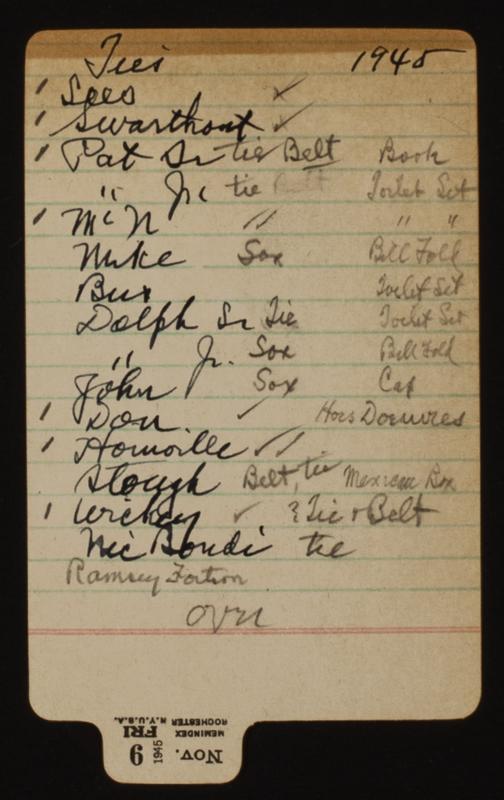 Ties 1945
' Sees ✓
' Swarthout ✓
' Pat Sr tie Belt Book
" Jr. tie Belt Toilet Set
' McN " " "
Mike Sox Bill Fold
Bux Toilet Set
Dolph Sr Tie Toilet Set
" Jr. Sox Bill Fold
John Sox Cap
' Don ✓ Hors Doeuvres
' Homoille ✓ "
Stough Belt, tie Mexican Box
' Wickey ✓ ? Tie + Belt
Nic Bondi tie
Ramsey Fortson
over
Nov. 9 1945 FRI
MEMINDEX
ROCHESTER N.Y. U.S.A.